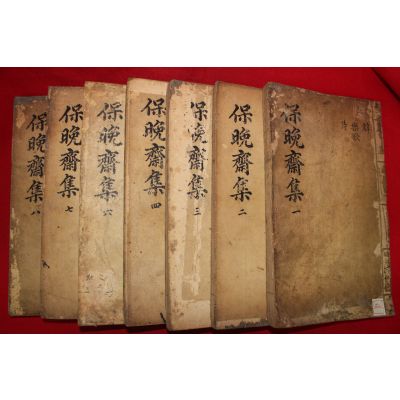 保晚齋集 一
保晚齋集 二
保晚齋集 三
保晚齋集 四
保晚齋集 六
保晚齋集 七
保晚齋集 八